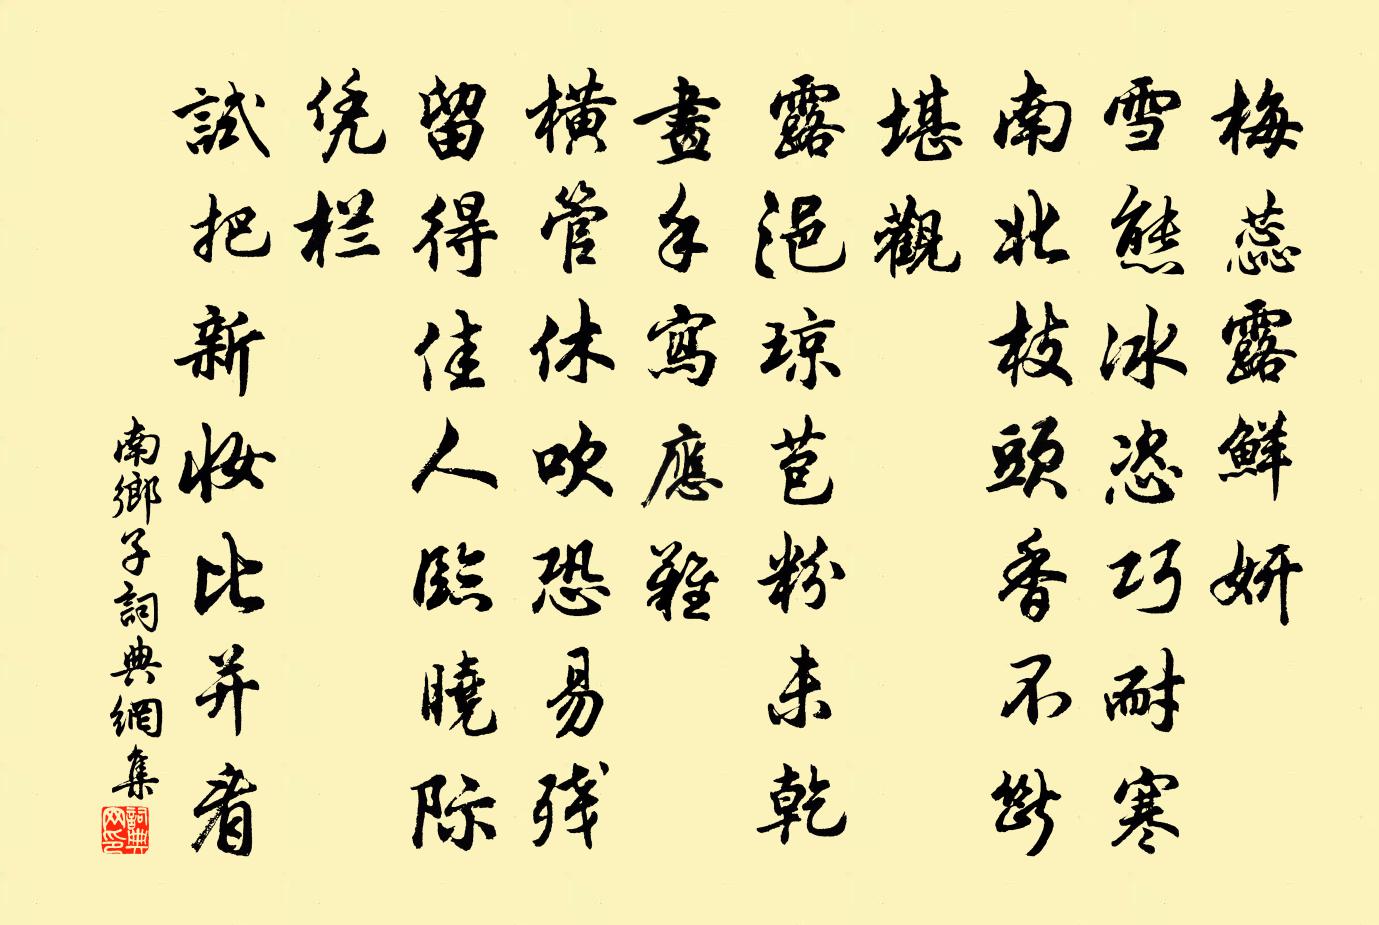 梅蕊露鮮妍
雪態冰恣巧耐寒
南北枝頭香不斷
堪觀
露浥琼苞粉未乾
畫手寫應難
橫管休吹恐易残
留得佳人臨曉际
凭栏
試把新妆比并看
南鄉子詞典網集
詞典网印